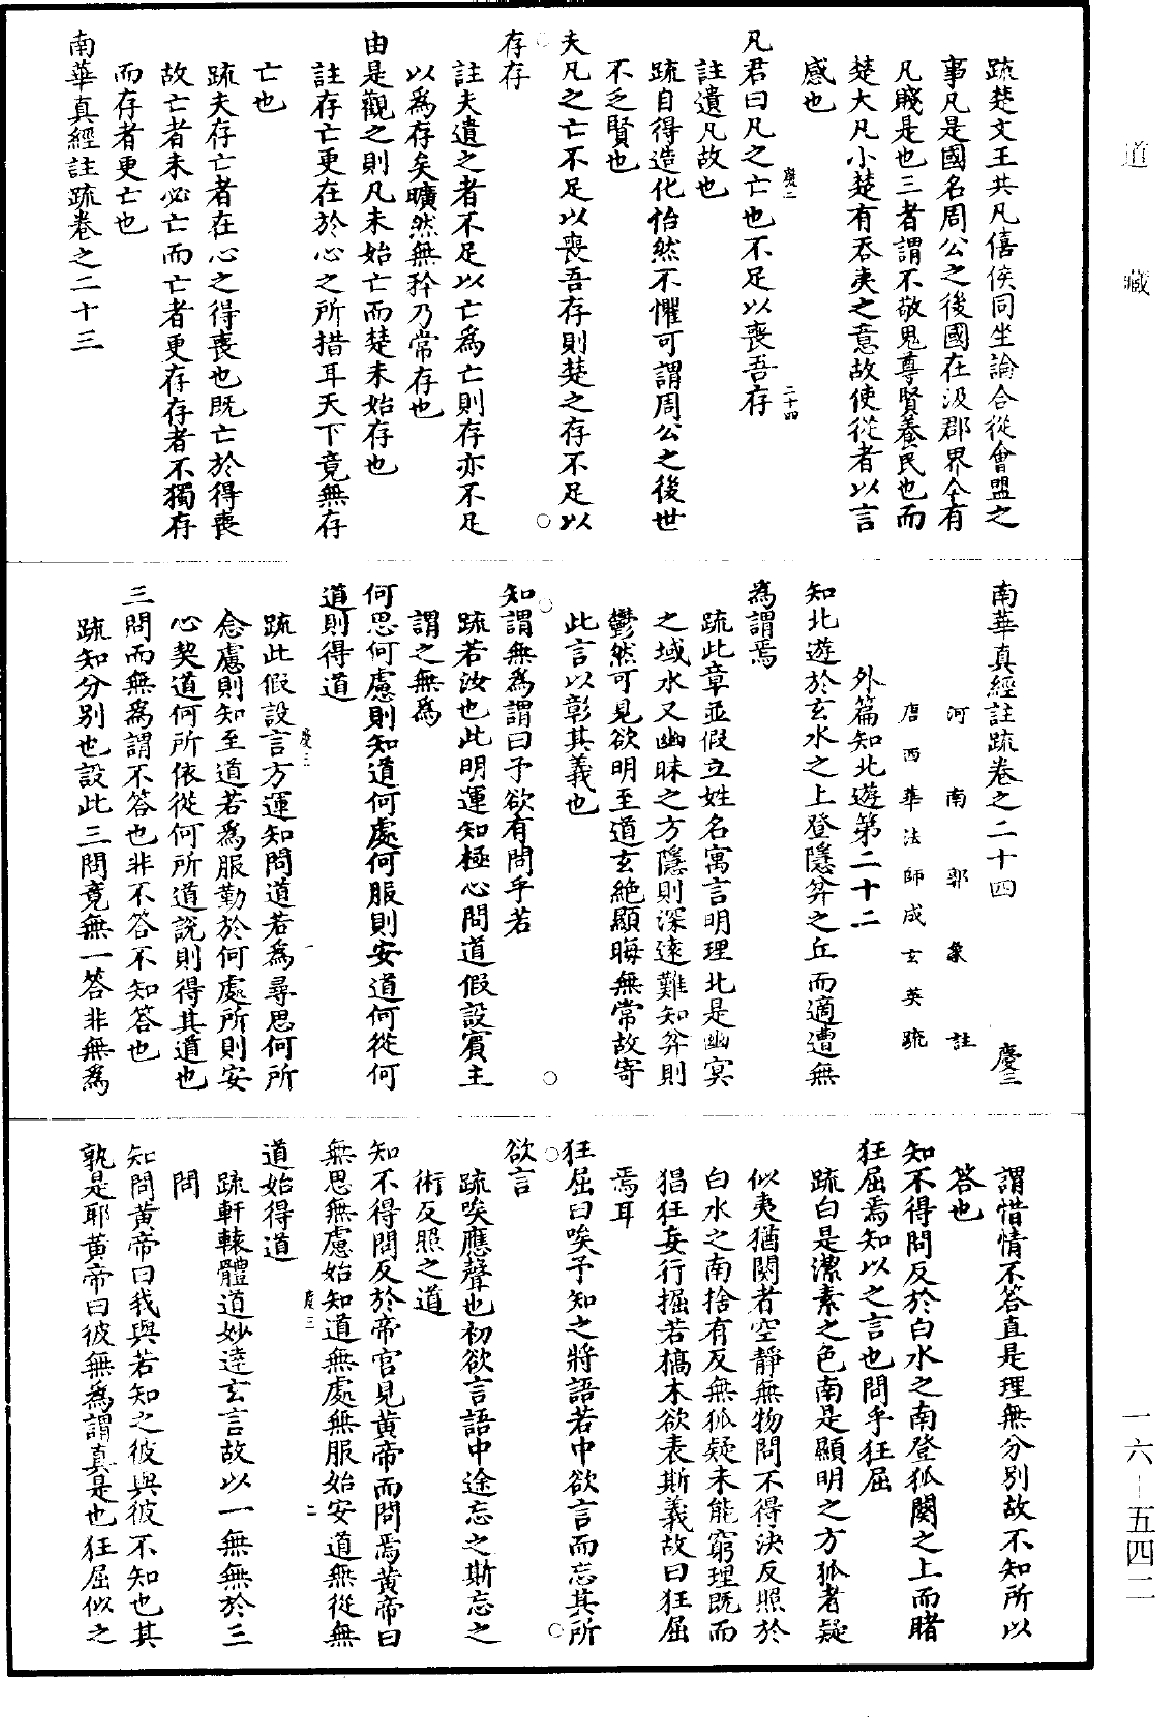 道藏
疏楚文王共凡僖侯同坐論合從會盟之
事凡是國名周公之後國在汲郡界今有
凡賤是也三者謂不敬鬼尊賢養民也而
楚大凡小楚有吞夷之意故使從者以言
感也
凡君曰凡之亡也不足以喪吾存
慶二
二十四
註遺凡故也
疏自得造化怡然不懼可謂周公之後世
不乏賢也
夫凡之亡不足以喪吾存則楚之存不足以
存存
註夫遺之者不足以亡為亡則存亦不足
以為存矣曠然無矜乃常存也
由是觀之則凡未始亡而楚未始存也
註存亡更在於心之所措耳天下竟無存
亡也
疏夫存亡者在心之得喪也既亡於得喪
故亡者未必亡而亡者更存存者不獨存
而存者更亡也
南華真經註疏卷之二十三
南華真經註疏卷之二十四
慶三
河南郭象註
唐西華法師成玄英疏
外篇知北遊第二十二
知北遊於玄水之上登隱弅之丘而適遭無
為謂焉
疏此章並假立姓名寓言明理北是幽冥
之域水又幽昧之方隱則深遠難知弅則
鬱然可見欲明至道玄絶顯晦無常故寄
此言以彰其義也
知謂無為謂曰予欲有問乎若
疏若汝也此明運知極心問道假設賓主
謂之無為
何思何慮則知道何處何服則安道何從何
道則得道
疏此假設言方運知問道若為尋思何所
念慮則知至道若為服勤於何處所則安
心契道何所依從何所道說則得其道也
慶三
一
三問而無為謂不答也非不答不知答也
疏知分別也設此三問竟無一答非無為
謂惜情不答直是理無分別故不知所以
答也
知不得問反於白水之南登狐闋之上而睹
狂屈焉知以之言也問乎狂屈
疏白是潔素之色南是顯明之方狐者疑
似夷猶闋者空靜無物問不得決反照於
白水之南捨有反無狐疑未能窮理既而
猖狂妄行掘若槁木欲表斯義故曰狂屈
焉耳
狂屈曰唉予知之將語若中欲言而忘其所
欲言
疏唉應聲也初欲言語中途忘之斯忘之
術反照之道
知不得問反於帝宮見黃帝而問焉黃帝曰
無思無慮始知道無處無服始安道無從無
道始得道
慶三
二
疏軒轅體道妙達玄言故以一無無於三
問
知問黃帝曰我與若知之彼與彼不知也其
孰是耶黃帝曰彼無為謂真是也狂屈似之
一六-五四二